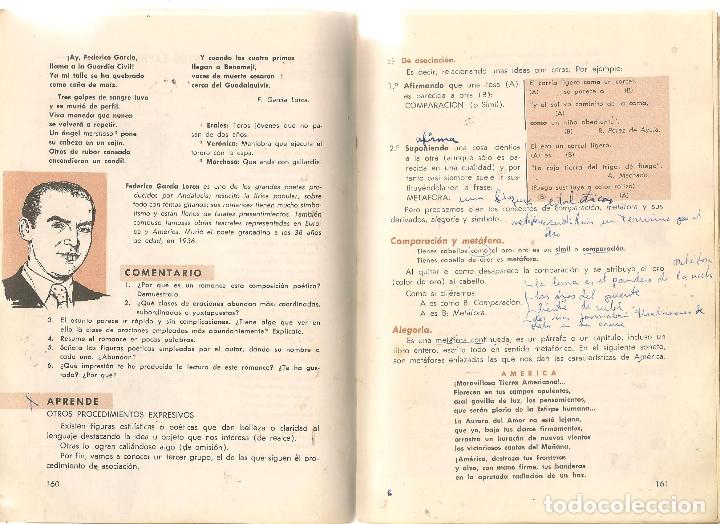 ¡Ay, Federico García,
llama a la Guardia Civil!
Ya mi talle se ha quebrado
como caña de maíz.
Tres golpes de sangre tuvo
y se murió de perfil.
Viva moneda que nunca
se volverá a repetir.
Un ángel marchoso ³ pone
su cabeza en un cojín.
Otros de rubor cansado
encendieron un candil.
Y cuando los cuatro primos
llegan a Benamejí,
voces de muerte cesaron
cerca del Guadalquivir.
F. García Lorca.
¹ Erales: Toros jóvenes que no pa-
san de dos años.
² Verónica: Maniobra que ejecuta el
torero con la capa.
³ Marchoso: Que anda con gallardía.
Federico García Lorca es uno de los grandes poetas pro-
ducidos por Andalucía; resucitó la lírica popular, sobre
todo con temas gitanos; sus romances tienen mucho simbo-
lismo y están llenos de fatales presentimientos. También
compuso famosas obras teatrales representadas en Euro-
pa y América. Murió el poeta granadino a los 38 años
de edad, en 1936.
COMENTARIO
1. ¿Por qué es un romance esta composición poética?
Demuéstralo.
2. ¿Qué clases de oraciones abundan más: coordinadas,
subordinadas o yuxtapuestas?
3. El asunto parece ir rápido y sin complicaciones. ¿Tiene algo que ver en
ello la clase de oraciones empleadas más abundantemente? Explícate.
4. Resume el romance en pocas palabras.
5. Señala las figuras poéticas empleadas por el autor, dando su nombre a
cada una. ¿Abundan?
6. ¿Qué impresión te ha producido la lectura de este romance? ¿Te ha gus-
tado? ¿Por qué?
APRENDE
OTROS PROCEDIMIENTOS EXPRESIVOS
Existen figuras estilísticas o poéticas que dan belleza o claridad al
lenguaje destacando la idea u objeto que nos interesa (de realce).
Otras lo logran callándose algo (de omisión).
Por fin, vamos a conocer un tercer grupo, el de las que siguen el pro-
cedimiento de asociación.
160
c) De asociación.
Es decir, relacionando unas ideas con otras. Por ejemplo:
1.º Afirmando que una cosa (A)
es parecida a otra (B):
COMPARACIÓN (o Símil).
El corría ligero como un corcel.
(A) se parece a (B)
"y el sol va caminito de la cama,
(A)
como un niño obediente".
(B) R. Pérez de Ayala.
afirma
2.º Suponiendo una cosa idéntica
a la otra (aunque sólo es pa-
recida en una cualidad) y por
tanto casi siempre suele ir sus-
tituyéndola en la frase:
METÁFORA.
El era un corcel ligero.
(A) es (B)
"La roja tierra del trigal de fuego".
A. Machado.
(Fuego sustituye a color rojizo)
(B) (A)
Pero precisemos bien los conceptos de comparación, metáfora y sus
derivados, alegoría y símbolo.
Comparación y metáfora.
Tienes cabellos como el oro: oro es un símil o comparación.
Tienes cabello de oro: es metáfora.
Al quitar el como desaparece la comparación y se atribuye el oro
(color de oro) al cabello.
Como si dijéramos:
A es como B: Comparación.
A es B: Metáfora.
metáfora
Alegoría.
Es una metáfora continuada, es un párrafo o un capítulo, incluso un
libro entero, escrito todo en sentido metafórico. En el siguiente soneto,
son metáforas enlazadas las que nos dan las características de América.
AMERICA
¡Maravillosa Tierra Americana!...
Florecen en tus campos opulentos,
cual gavilla de luz, los pensamientos,
que serán gloria de la Estirpe humana...
La Aurora del Amor no está lejana,
que ya, bajo tus claros firmamentos,
arrastra un huracán de nuevos vientos
los victoriosos cantos del Mañana.
¡América, destroza tus fronteras
y alza, con mano firme, tus banderas
en la apretada radiación de un haz.
6
161
todocoleccion